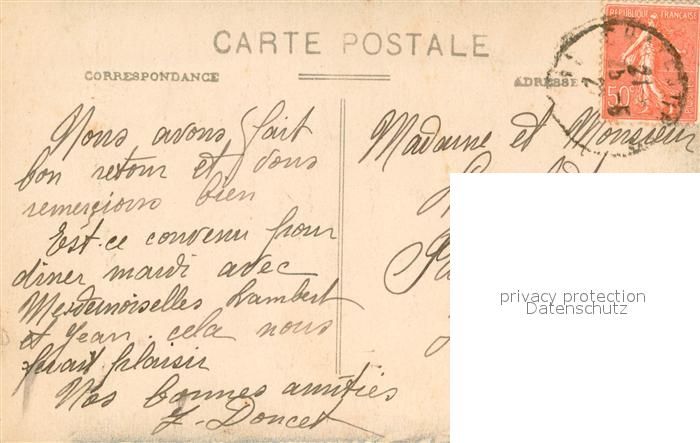 CARTE POSTALE
CORRESPONDANCE
ADRESSE
REPUBLIQUE FRANÇAISE
50c
Nous avons fait
bon retour et vous
remercions bien
Est-ce convenu pour
diner mardi avec
Mesdemoiselles Lambert
et Jean. cela nous
ferait plaisir
Nos bonnes amitiés
J. Doncet
Madame et Monsieur
privacy protection
Datenschutz